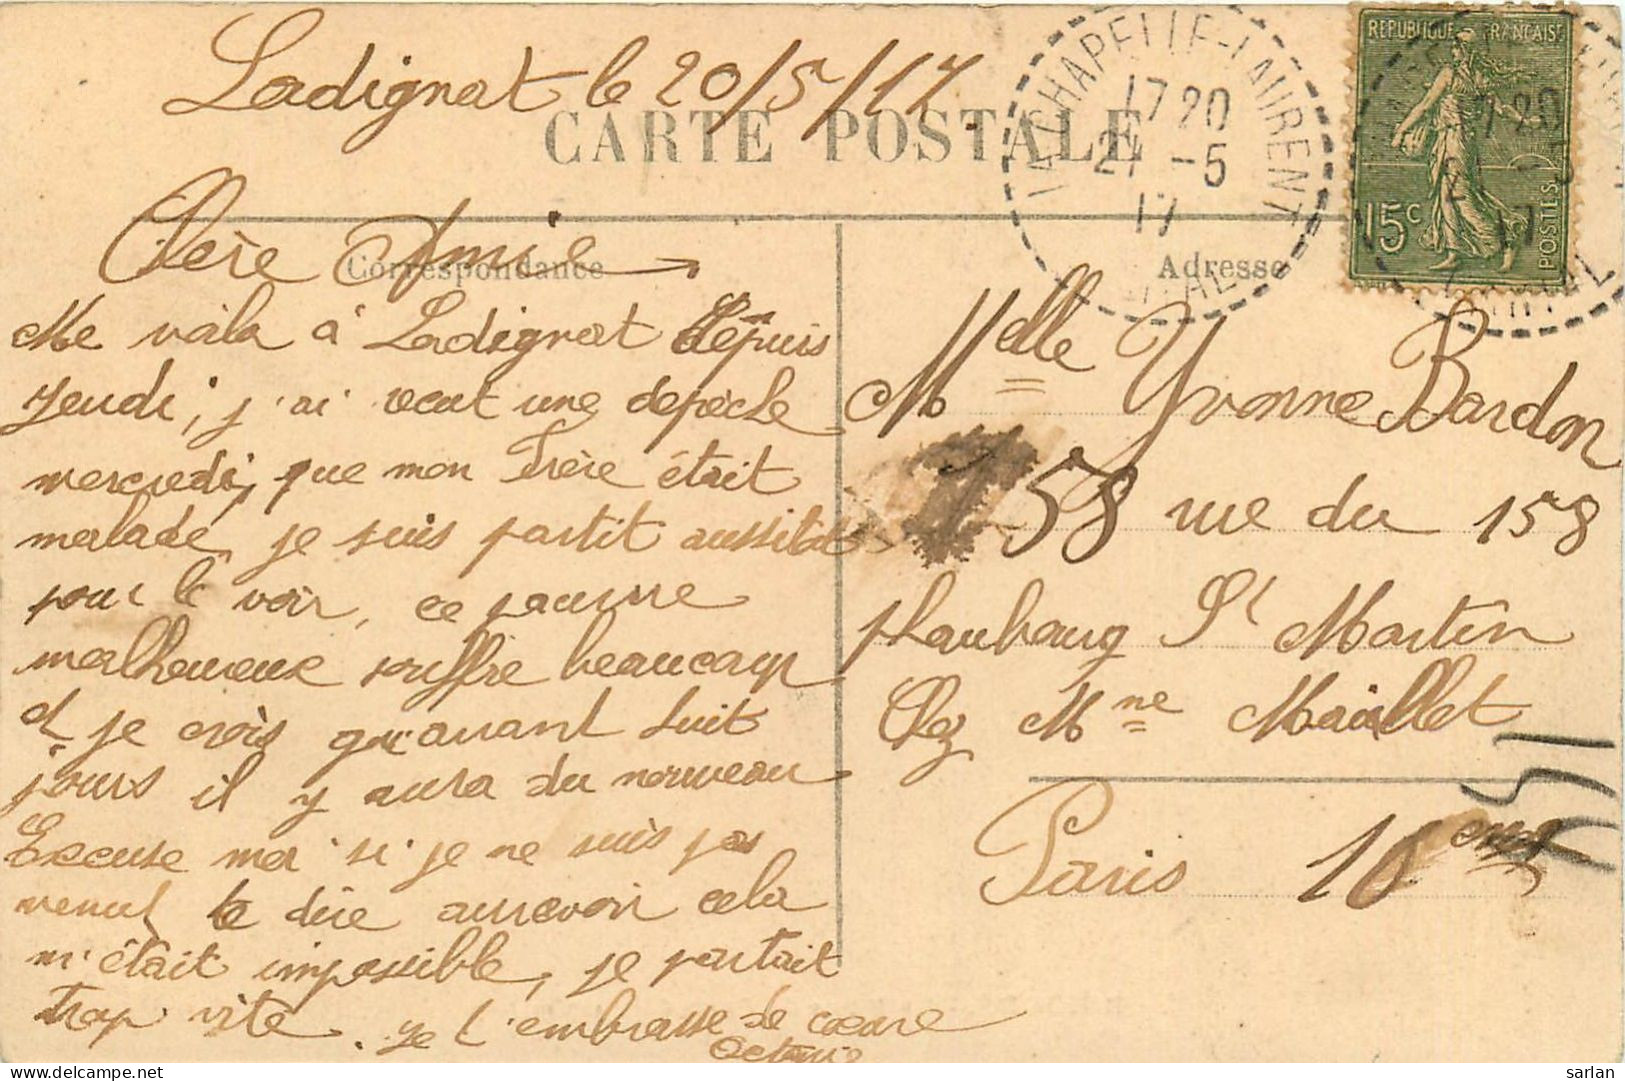 Ladignat le 20/5/17.
CARTE POSTALE
LACHAPELLE-LAURENT
1720
21 -5
17
REPUBLIQUE FRANÇAISE
15c
POSTES
Correspondance
Chère Amie
Me voila à Ladignat depuis
jeudi, j'ai recut une depeche
mercredi, que mon Frère était
malade, je suis partit aussitot
pour le voir, ce pauvre
malheureux souffre beaucoup
et je crois qu'avant huit
jours il y aura du nouveau
Excuse moi si je ne suis pas
venut te dire aurevoir cela
m'était impossible, je partait
trop vite. Je t'embrasse de coeure
Octavie
Adresse
Melle Yvonne Bardon
158 rue du 158
phaubourg St Martin
Chez Mme Maillet
Paris 10
sarlan